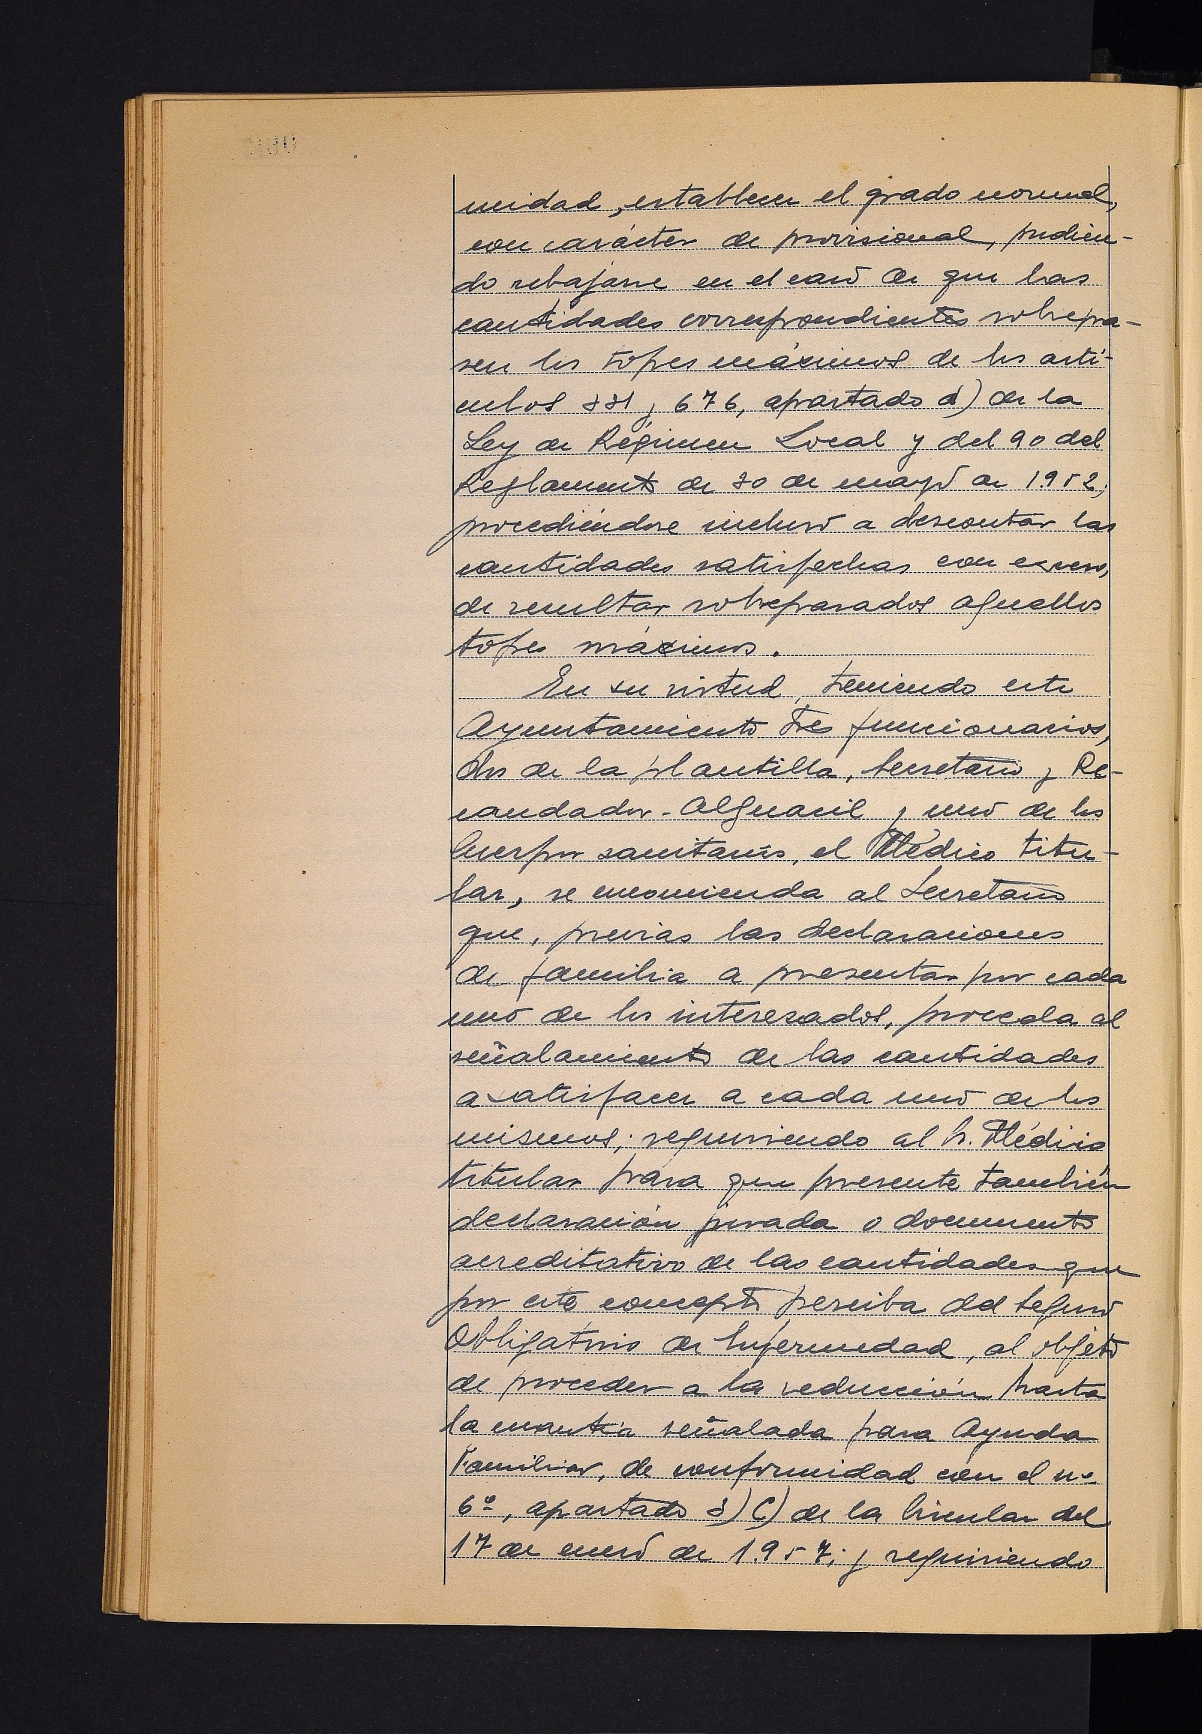 midad, establecer el grado normal,
con carácter de provisional, pudien-
do rebajarse en el caso de que las
cantidades correspondientes sobrepa-
sen los topes máximos de los artí-
culos 331 y 676, apartado d) de la
Ley de Régimen Local y del 90 del
Reglamento de 30 de mayo de 1952,
procediéndose incluso a descontar las
cantidades satisfechas con exceso,
de resultar sobrepasados aquellos
topes máximos.
En su virtud, teniendo este
Ayuntamiento tres funcionarios,
dos de la plantilla, Secretario y Re-
caudador-Alguacil y uno de los
Cuerpos sanitarios, el Médico titu-
lar, se encomienda al Secretario
que, previas las declaraciones
de familia a presentar por cada
uno de los interesados, proceda al
señalamiento de las cantidades
a satisfacer a cada uno de los
mismos; requiriendo al Sr. Médico
titular para que presente también
declaración jurada o documento
acreditativo de las cantidades que
por este concepto perciba del Seguro
Obligatorio de Enfermedad, al objeto
de proceder a la reducción hasta
la cuantía señalada para Ayuda
Familiar, de conformidad con el nº
6º, apartado 3) C) de la Circular del
17 de enero de 1.957; y requiriendo